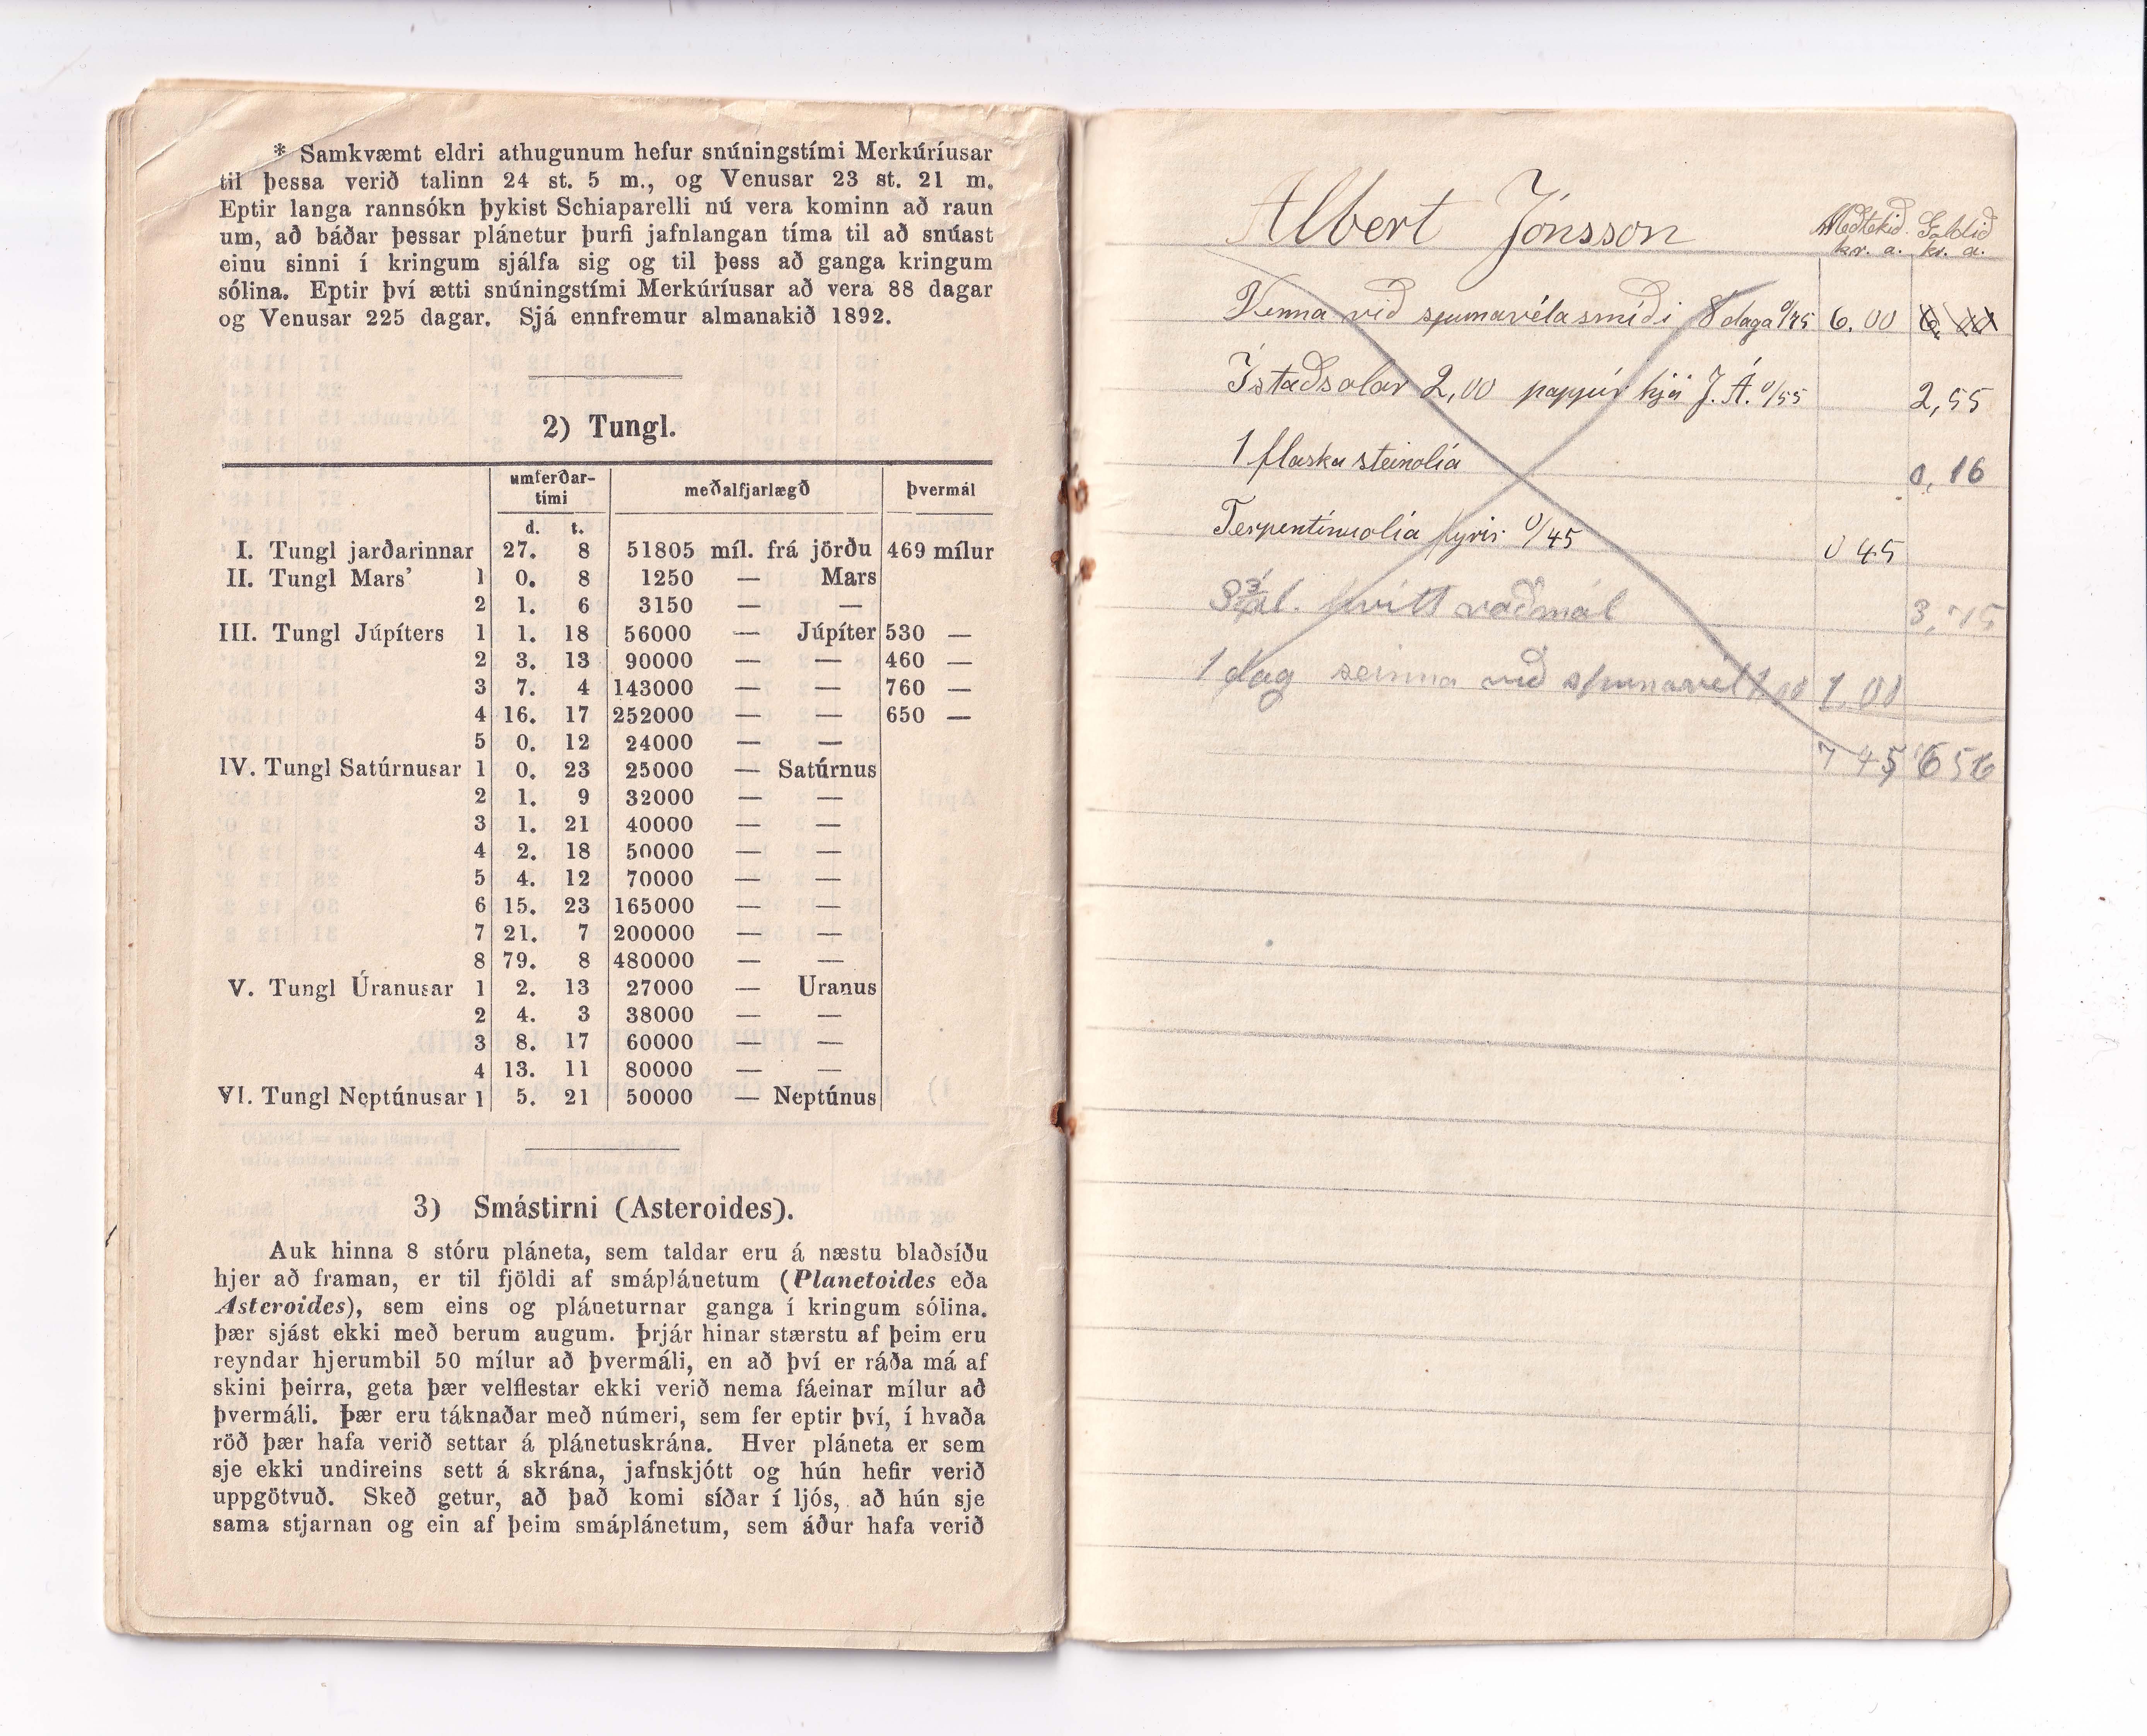 * Samkvæmt eldri athugunum hefur snúningstími Merkúríusar
til þessa verið talinn 24 st. 5 m., og Venusar 23 st. 21 m.
Eptir langa rannsókn þykist Schiaparelli nú vera kominn að raun
um, að báðar þessar plánetur þurfi jafnlangan tíma til að snúast
einu sinni í kringum sjálfa sig og til þess að ganga kringum
sólina. Eptir því ætti snúningstími Merkúríusar að vera 88 dagar
og Venusar 225 dagar. Sjá ennfremur almanakið 1892.
2) Tungl.
umferðar-
tími meðalfjarlægð þvermál
d. t.
I. Tungl jarðarinnar 27. 8 51805 míl. frá jörðu 469 mílur
II. Tungl Mars' 1 0. 8 1250 — Mars
2 1. 6 3150 — —
III. Tungl Júpíters 1 1. 18 56000 — Júpíter 530 —
2 3. 13 90000 — — 460 —
3 7. 4 143000 — — 760 —
4 16. 17 252000 — — 650 —
5 0. 12 24000 — —
IV. Tungl Satúrnusar 1 0. 23 25000 — Satúrnus
2 1. 9 32000 — —
3 1. 21 40000 — —
4 2. 18 50000 — —
5 4. 12 70000 — —
6 15. 23 165000 — —
7 21. 7 200000 — —
8 79. 8 480000 — —
V. Tungl Úranusar 1 2. 13 27000 — Uranus
2 4. 3 38000 — —
3 8. 17 60000 — —
4 13. 11 80000 — —
VI. Tungl Neptúnusar 1 5. 21 50000 — Neptúnus
3) Smástirni (Asteroides).
Auk hinna 8 stóru pláneta, sem taldar eru á næstu blaðsíðu
hjer að framan, er til fjöldi af smáplánetum (Planetoides eða
Asteroides), sem eins og pláneturnar ganga í kringum sólina.
Þær sjást ekki með berum augum. Þrjár hinar stærstu af þeim eru
reyndar hjerumbil 50 mílur að þvermáli, en að því er ráða má af
skini þeirra, geta þær velflestar ekki verið nema fáeinar mílur að
þvermáli. Þær eru táknaðar með númeri, sem fer eptir því, í hvaða
röð þær hafa verið settar á plánetuskrána. Hver pláneta er sem
sje ekki undireins sett á skrána, jafnskjótt og hún hefir verið
uppgötvuð. Skeð getur, að það komi síðar í ljós, að hún sje
sama stjarnan og ein af þeim smáplánetum, sem áður hafa verið
Albert Jónsson Meðtekið. Goldið
kr. a. kr. a.
Vinna við spunavélasmíði 8 daga 0/75 6.00
Ístaðsolar 2,00 pappír hjá J.Á. 0/55 2,55
1 flaska steinolía 0,16
Terpentínuolía fyrir 0/45 0 45
3 3/4 al. hvítt vaðmál 3,75
1 dag seinna við spunavél 1.00 1.00
7 45 6 56